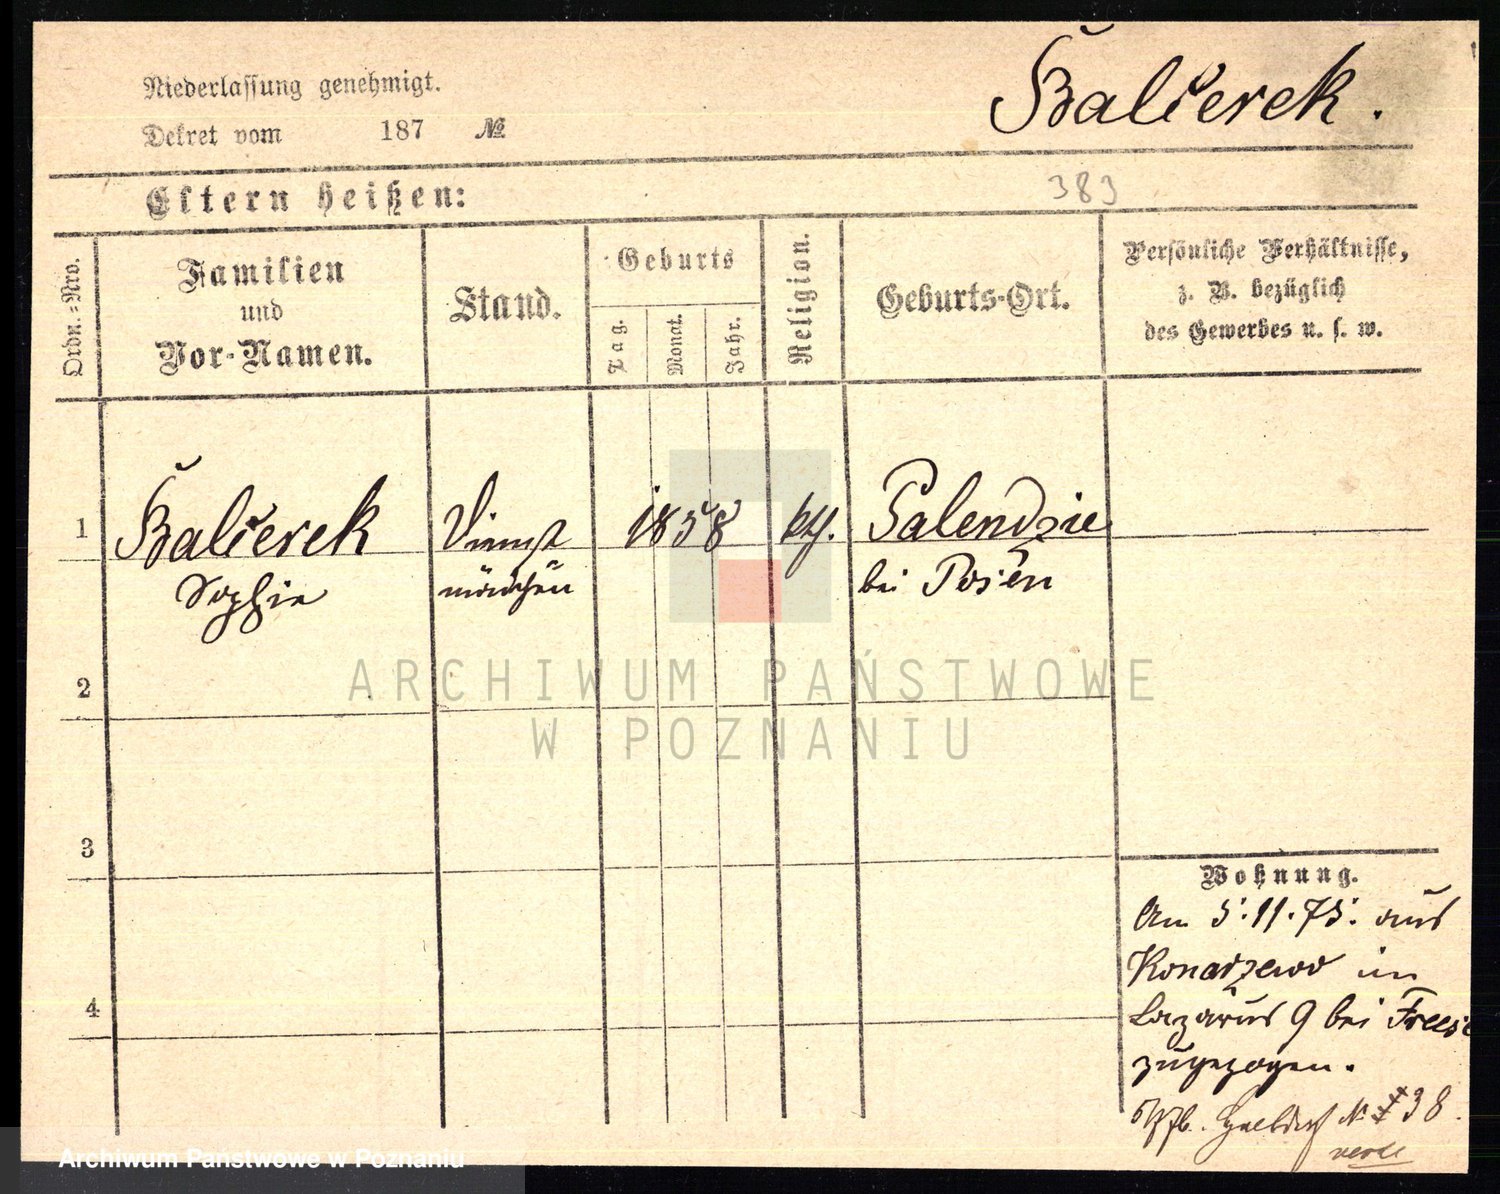 Niederlassung genehmigt.
Dekret vom 187 №
Balcerek.
Eltern heißen:
383
Ordn.-Nro.
Familien
und
Vor-Namen.
Stand.
Geburts
Tag.
Monat.
Jahr.
Religion.
Geburts-Ort.
Persönliche Verhältnisse,
z. B. bezüglich
des Gewerbes u. s. w.
1
Balcerek
Sophie
Dienst
mädchen
1858
kth.
Palendzie
bei Posen
2
3
4
Wohnung.
Am 5.11.75. aus
Konarzewo in
Lazarus 9 bei Freese
zugezogen.
N. 38.
ARCHIWUM PAŃSTWOWE
W POZNANIU
Archiwum Państwowe w Poznaniu